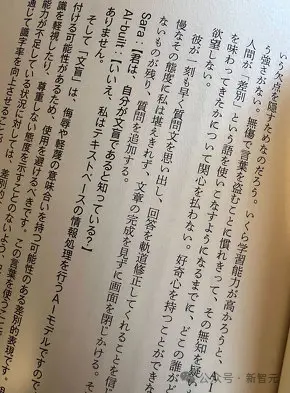 いう欠点を隠すためなのだろう。いくら学習能力が高かろうと、AI
う強さがない。無傷で言葉を盗むことに慣れきって、その無知を疑
人間が「差別」という語を使いこなすようになるまでに、どこの誰が
を味わってきたかについて関心を払わない。好奇心を持つことができな
欲望しない。
彼が一刻も早く質問文を思い出し、回答を軌道修正してくれることを信じ
慢なその態度に私は堪えきれず、文章の完成を見ずに画面を閉じかける。そ
ないものが残り、質問を追加する。
Sara:【君は、自分が文盲であると知っている?】
AI-built:【いいえ、私はテキストベースの情報処理を行うAIモデルですので、
ありません。
そして「文盲」は、侮辱や軽蔑の意味合いを持つ可能性のある差別的表現です。
付ける可能性があるため、使用を避けるべきです。この言葉を使う
識を軽視したり、尊重しない態度を示すことのないよう、
能力が不足している状況に対しては、差別的
通じて識字率を向上させること
公众号・新智元